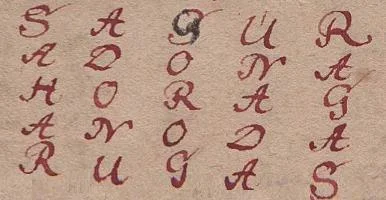 S A G U R
A D O N A
H O R A G
A N O D A
R U G A S